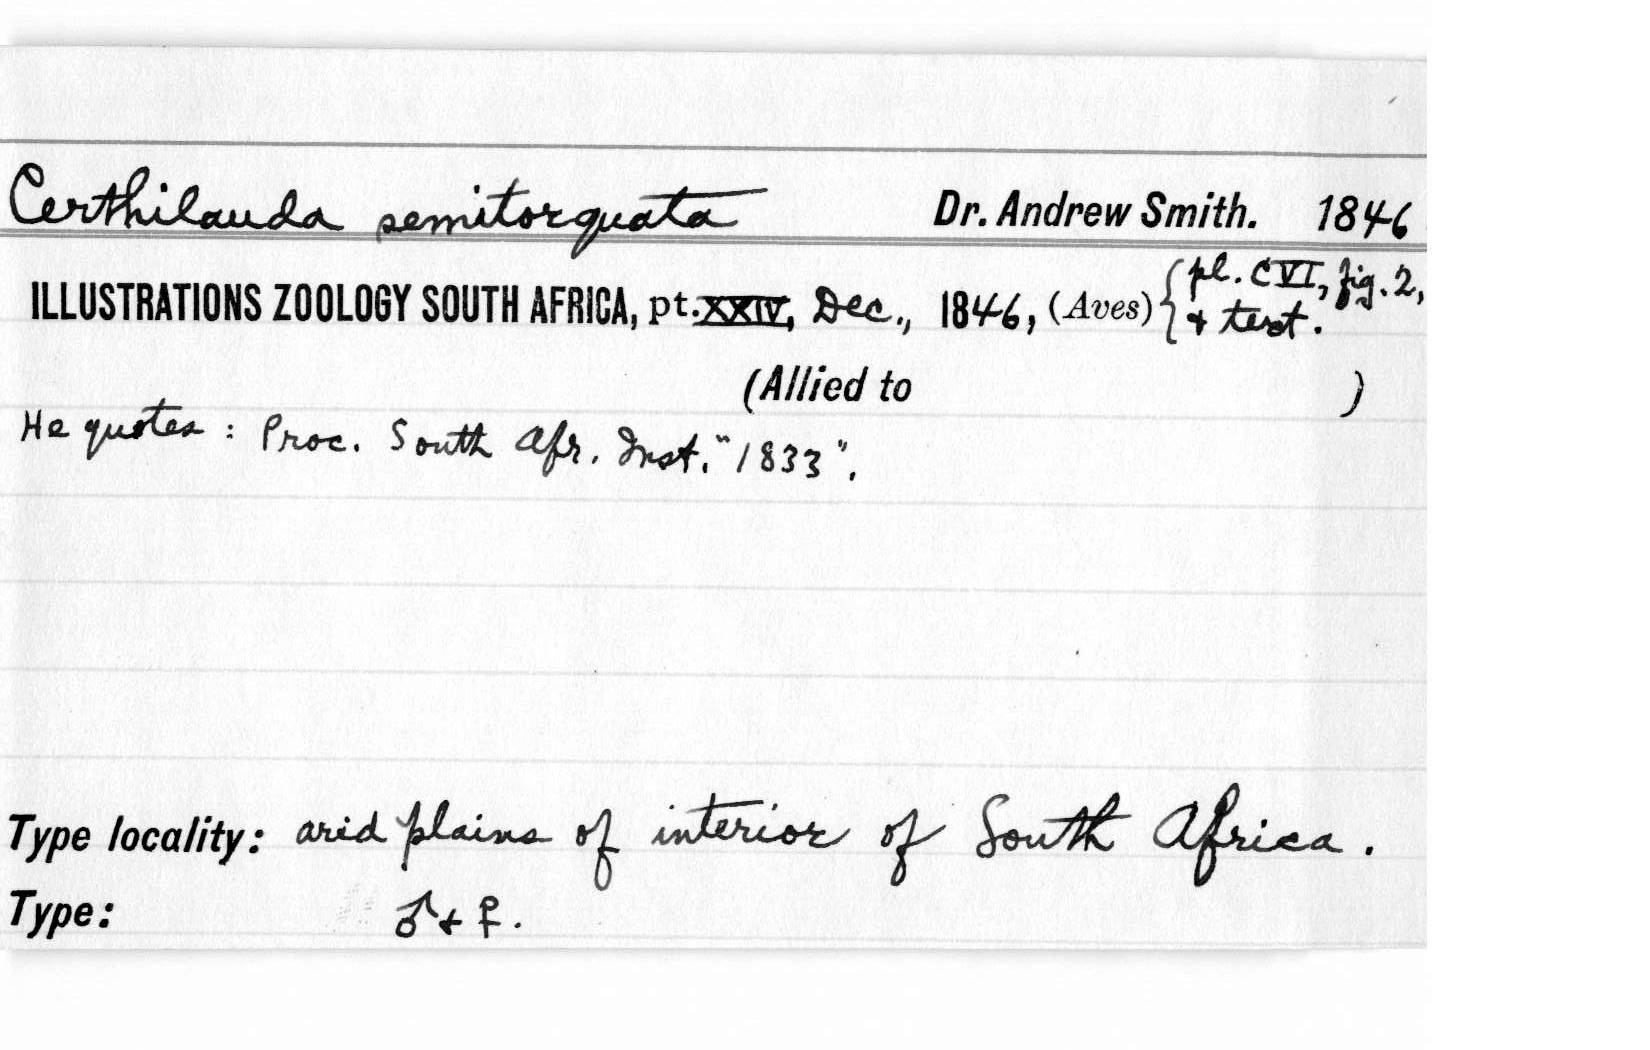 Certhilauda semitorquata Dr. Andrew Smith. 1846
ILLUSTRATIONS ZOOLOGY SOUTH AFRICA, pt. XXIV, Dec., 1846, (Aves) { pl. CVI, fig. 2,
& text.
(Allied to )
He quotes : Proc. South Afr. Inst. "1833".
Type locality: arid plains of interior of South Africa.
Type: ♂ & ♀.